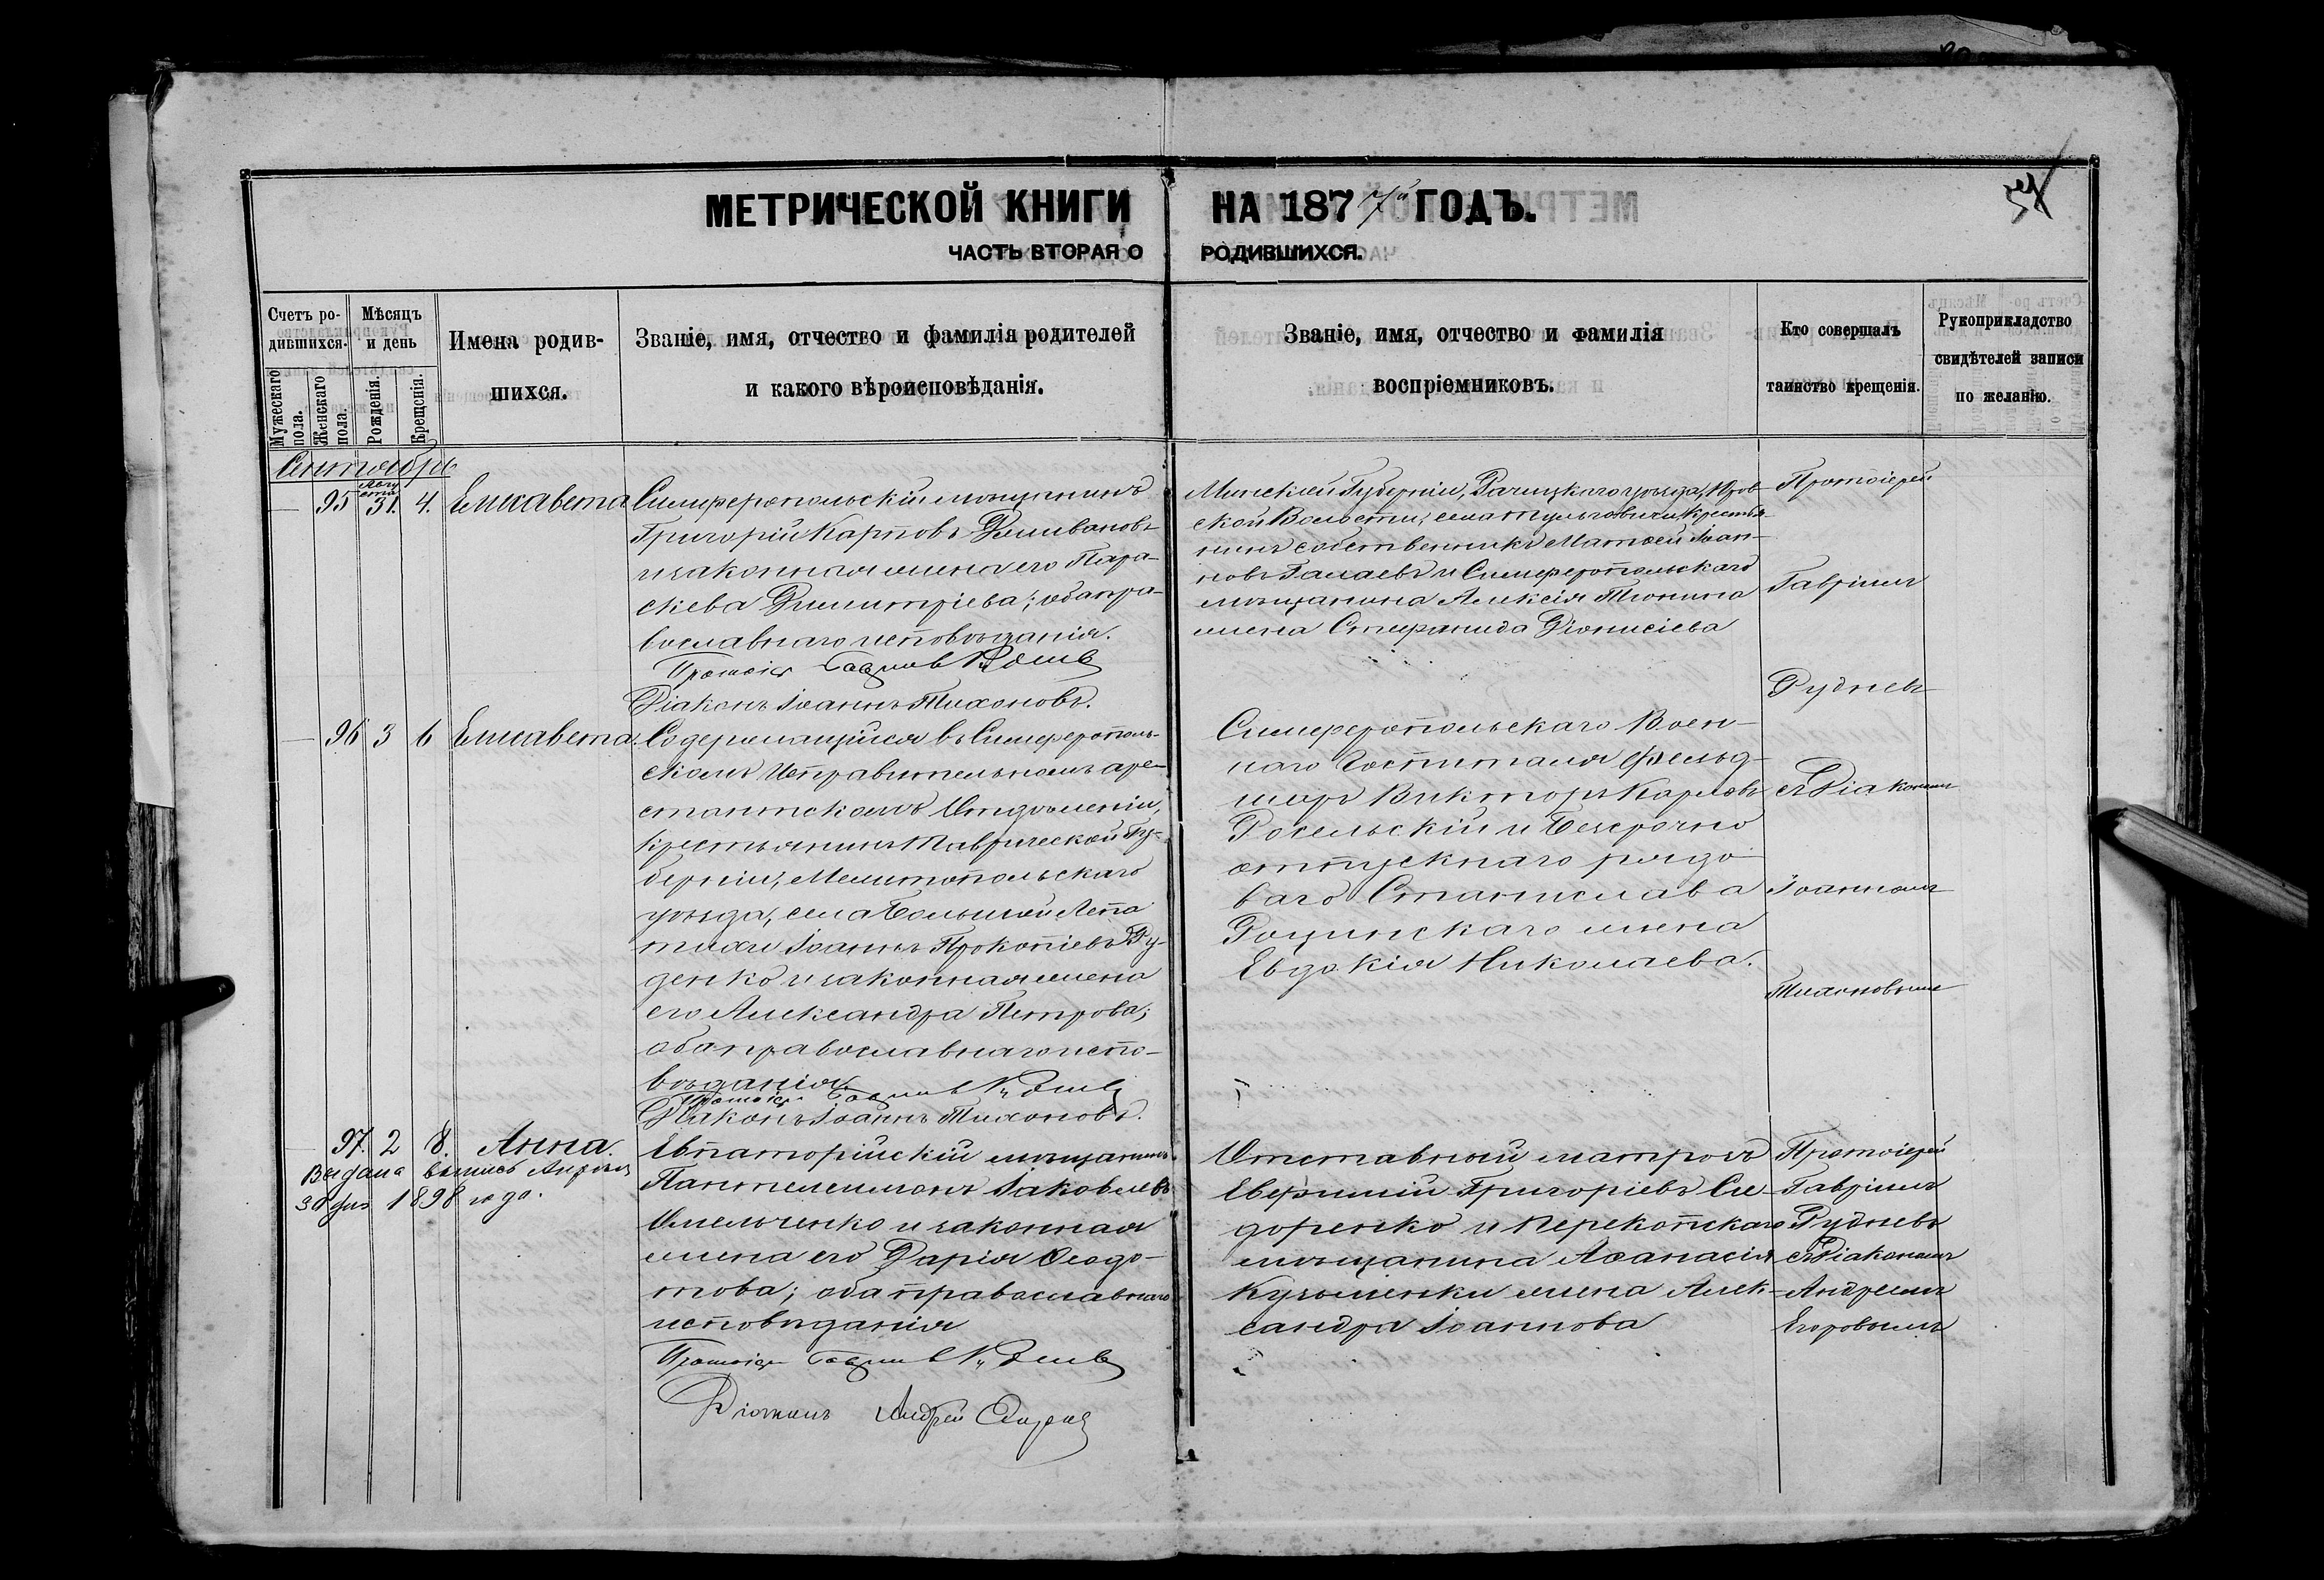 МЕТРИЧЕСКОЙ КНИГИ НА 1877й ГОДЪ.
ЧАСТЬ ВТОРАЯ О РОДИВШИХСЯ.
Счетъ родившихся.
Мужескаго пола.
Женскаго пола.
Мѣсяцъ и день
Рожденія.
Крещенія.
Имена родившихся.
Званіе, имя, отчество и фамилія родителей
и какого вѣроисповѣданія.
Званіе, имя, отчество и фамилія
воспріемниковъ.
Кто совершалъ
таинство крещенія.
Рукоприкладство
свидѣтелей записи
по желанію.
Сентябрь
95 Августа 31. 4. Елисавета
Симферопольскій мѣщанинъ
Григорій Карповъ
и законная жена его Пара-
скева Димитріева; оба пра-
вославнаго исповѣданія.
Протоіерей Гавріилъ Рудневъ
Діаконъ Іоаннъ Тихоновъ.
Минской Губерніи, Рѣчицкаго уѣзда, Юров-
ской Волости, села Тульговичи, крестья-
нинъ собственникъ Матѳей Іоан-
новъ Галаевъ и Симферопольскаго
мѣщанина Алексія Тюнина
жена Стефанида Діонисіева
Протоіерей
Гавріилъ
Рудневъ
96 3 6 Елисавета.
Содержащійся въ Симферополь-
скомъ Исправительномъ аре-
стантскомъ Отдѣленіи,
крестьянинъ Таврической Гу-
берніи, Мелитопольскаго
уѣзда, села Большой Лепа-
тихи Іоаннъ Прокопіевъ Ру-
денко и законная жена
его Александра Петрова;
оба православнаго испо-
вѣданія.
Протоіерей Гавріилъ Рудневъ
Діаконъ Іоаннъ Тихоновъ.
Симферопольскаго Воен-
наго Госпиталя фельд-
шеръ Викторъ Карловъ
и безсрочно
отпускнаго рядо-
ваго Станислава
Рощинскаго жена
Евдокія Николаева.
съ Діакономъ
Іоанномъ
Тихоновымъ
97. 2 8. Анна.
Выдана выпись Апрѣля
30 дня 1898 года.
Евпаторійскій мѣщанинъ
Пантелеимонъ Іаковлевъ
Омельченко и законная
жена его Дарія Ѳеодо-
това; оба православнаго
исповѣданія
Протоіерей Гавріилъ Рудневъ
Діаконъ Андрей Егоровъ
Отставный матросъ
Евфимій Григоріевъ Си-
доренко и Перекопскаго
мѣщанина Аѳанасія
Кузьменки жена Алек-
сандра Іоаннова
Протоіерей
Гавріилъ
Рудневъ
съ Діакономъ
Андреемъ
Егоровымъ